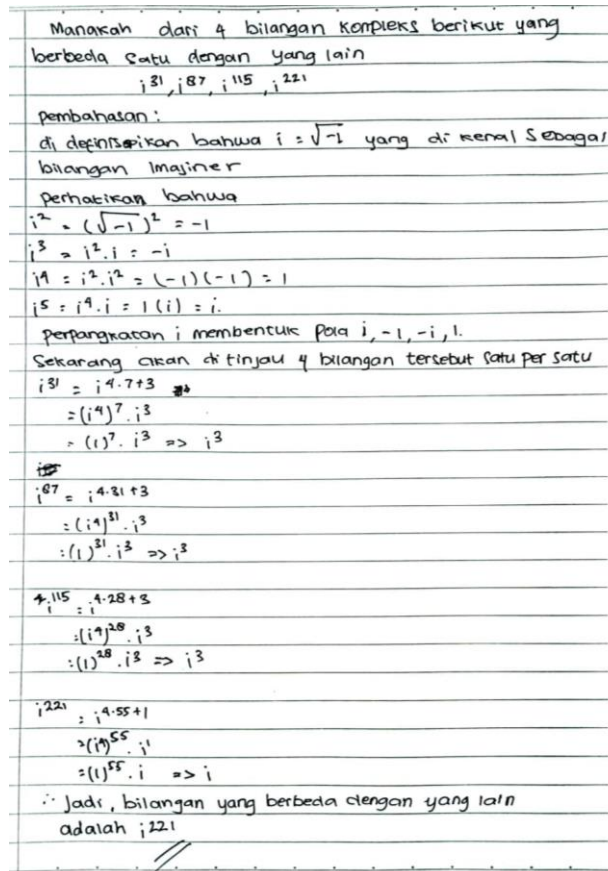 Manakah dari 4 bilangan kompleks berikut yang
berbeda satu dengan yang lain
i^31, i^87, i^115, i^221
pembahasan:
di definisikan bahwa i = √-1 yang di kenal sebagai
bilangan Imajiner
perhatikan bahwa
i^2 = (√-1)^2 = -1
i^3 = i^2.i = -i
i^4 = i^2.i^2 = (-1)(-1) = 1
i^5 = i^4.i = 1(i) = i.
perpangkatan i membentuk pola i, -1, -i, 1.
Sekarang akan di tinjau 4 bilangan tersebut satu per satu
i^31 = i^4.7+3
= (i^4)^7 . i^3
= (1)^7 . i^3 => i^3
i^87 = i^4.31+3
= (i^4)^31 . i^3
= (1)^31 . i^3 => i^3
i^115 = i^4.28+3
= (i^4)^28 . i^3
= (1)^28 . i^3 => i^3
i^221 = i^4.55+1
= (i^4)^55 . i^1
= (1)^55 . i => i
∴ Jadi, bilangan yang berbeda dengan yang lain
adalah i^221